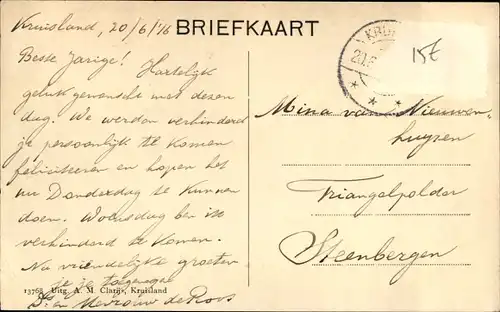 Kruisland, 20/6/'16
BRIEFKAART
KRUI
20.6
15€
Beste Jarige! Hartelijk
geluk gewenscht met dezen
dag. We werden verhinderd
je persoonlijk te komen
feliciteren en hopen het
nu Donderdag te kunnen
doen. Woensdag ben ik
verhinderd te komen.
Na vriendelijke groeten
je toegenegen
Ds en Mevrouw de Roos
Mina van Nieuwen-
huyzen
Triangelpolder
Steenbergen
13768 Uitg. A. M. Clarijs, Kruisland